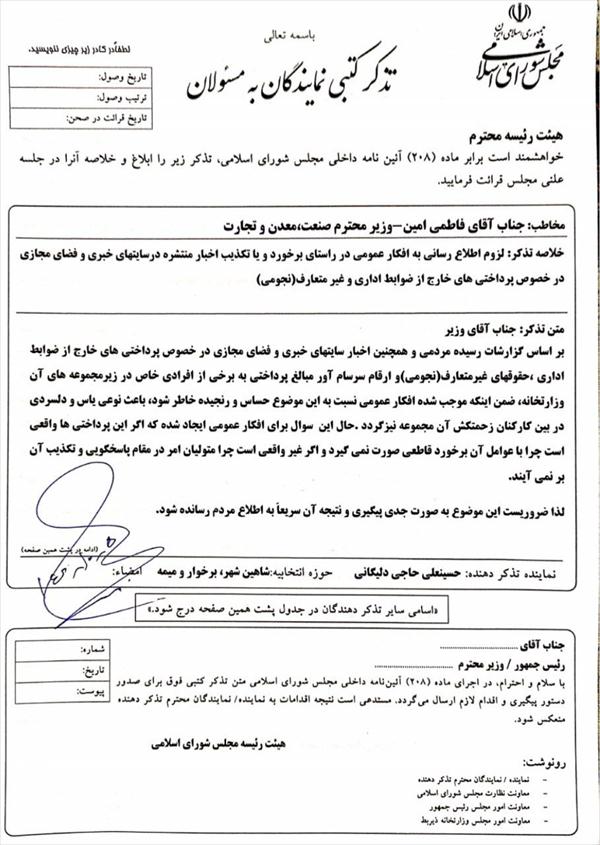 جمهوری اسلامی ایران
مجلس شورای اسلامی
باسمه تعالی
تذکر کتبی نمایندگان به مسئولان
لطفاً در کادر زیر چیزی ننویسید.
تاریخ وصول:
ترتیب وصول:
تاریخ قرائت در صحن:
هیئت رئیسه محترم
خواهشمند است برابر ماده (۲۰۸) آئین نامه داخلی مجلس شورای اسلامی، تذکر زیر را ابلاغ و خلاصه آنرا در جلسه
علنی مجلس قرائت فرمایید.
مخاطب: جناب آقای فاطمی امین–وزیر محترم صنعت،معدن و تجارت
خلاصه تذکر: لزوم اطلاع رسانی به افکار عمومی در راستای برخورد و یا تکذیب اخبار منتشره درسایتهای خبری و فضای مجازی
در خصوص پرداختی های خارج از ضوابط اداری و غیر متعارف(نجومی)
متن تذکر: جناب آقای وزیر
بر اساس گزارشات رسیده مردمی و همچنین اخبار سایتهای خبری و فضای مجازی در خصوص پرداختی های خارج از ضوابط
اداری ،حقوقهای غیرمتعارف(نجومی)و ارقام سرسام آور مبالغ پرداختی به برخی از افرادی خاص در زیرمجموعه های آن
وزارتخانه، ضمن اینکه موجب شده افکار عمومی نسبت به این موضوع حساس و رنجیده خاطر شود، باعث نوعی یاس و دلسردی
در بین کارکنان زحمتکش آن مجموعه نیزگردد .حال این سوال برای افکار عمومی ایجاد شده که اگر این پرداختی ها واقعی
است چرا با عوامل آن برخورد قاطعی صورت نمی گیرد و اگر غیر واقعی است چرا متولیان امر در مقام پاسخگویی و تکذیب آن
بر نمی آیند.
لذا ضروریست این موضوع به صورت جدی پیگیری و نتیجه آن سریعاً به اطلاع مردم رسانده شود.
(ادامه در پشت همین صفحه)
نماینده تذکر دهنده: حسینعلی حاجی دلیگانی حوزه انتخابیه:شاهین شهر، برخوار و میمه امضاء:
«اسامی سایر تذکر دهندگان در جدول پشت همین صفحه درج شود.»
جناب آقای
رئیس جمهور / وزیر محترم
شماره:
تاریخ:
پیوست:
با سلام و احترام، در اجرای ماده (۲۰۸) آئین‌نامه داخلی مجلس شورای اسلامی متن تذکر کتبی فوق برای صدور
دستور پیگیری و اقدام لازم ارسال می‌گردد. مستدعی است نتیجه اقدامات به نماینده/ نمایندگان محترم تذکر دهنده
منعکس شود.
هیئت رئیسه مجلس شورای اسلامی
رونوشت:
- نماینده / نمایندگان محترم تذکر دهنده
- معاونت نظارت مجلس شورای اسلامی
- معاونت امور مجلس رئیس جمهور
- معاونت امور مجلس وزارتخانه ذیربط